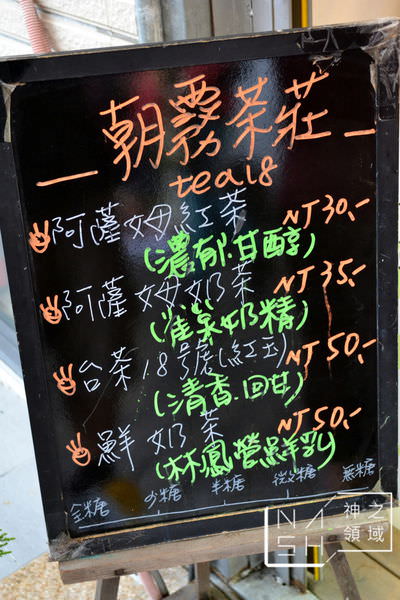 朝霧茶莊
tea18
阿薩姆紅茶 NT30,-
(濃郁.甘醇)
阿薩姆奶茶 NT35,-
(雀巢奶精)
台茶18號(紅玉) NT50,-
(清香.回甘)
鮮奶茶 NT50,-
(林鳳營鮮乳)
全糖 少糖 半糖 微糖 無糖
NASH 神之領域